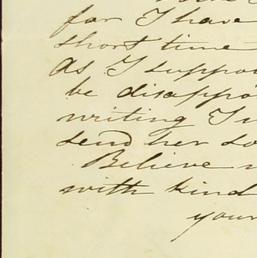 for I have
short time
as I suppo
be disappo
writing I
send her so
Believe
with kind
your